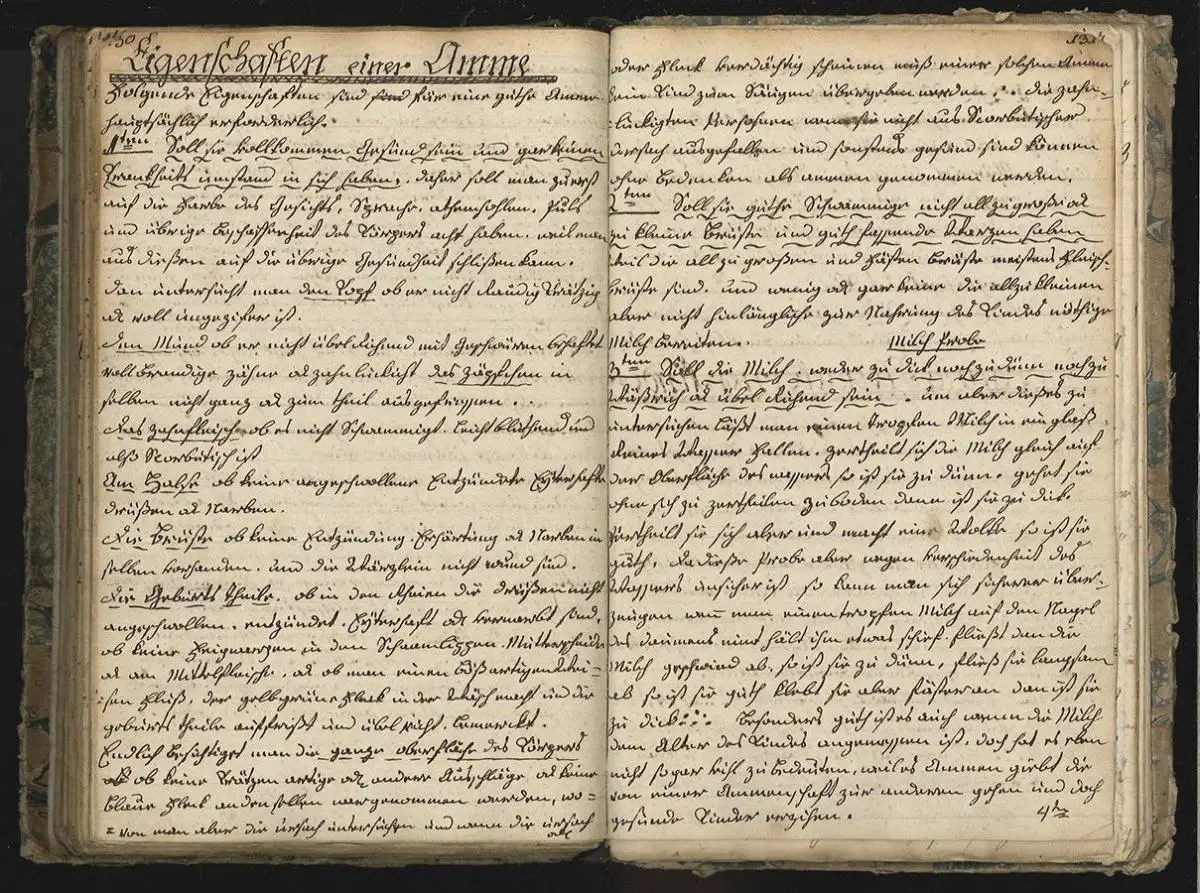 130
Eigenschaften einer Amme
Folgende Eigenschaften sind für eine guthe Amme
hauptsächlich erforderlich.
1tens Soll sie vollkommen Gesund sein und gar keinen
Krankheits umstand in sich haben; daher soll man zuerst
auf die Farbe des Gesichts, Sprache, athemhohlen, Puls
und übrige Beschaffenheit des Körpers acht haben. weil man
aus dießen auf die übrige Gesundheit schlißen kann.
dan untersucht man den Kopf ob er nicht Raudig Krätzig
od voll ungezifer ist.
den Mund ob er nicht übel Richend mit Geschwüren behaftet
voll brandige zähne od zahnlückicht das zäpfchen in
selben nicht ganz od zum theil ausgefressen . .
das zahnfleisch ob es nicht Schwammigt. leicht blüthend und
also Scorbutisch ist
Am Halse ob keine angeschwollene Entzündete Eyterhafte
drüßen od Narben.
die Brüste ob keine Entzündung. Erhärtung od Narben in
selben vorhanden. und die Wärzlein nicht wund sind.
die Geburts theile. ob in den die drüßen nicht
angeschwollen. entzündet. Eyterhaft od vernarbt sind.
ob keine Feigwarzen in den Schaamlippen. Mutterscheide
od am Mittelfleische. od ob man einen bößartigen
Fluß. der gelbgrüne Fleck in der Wäsch macht und die
geburts theile auffrißt und übel riecht. bemerckt.
Endlich besichtiget man die ganze oberfläche des Körpers
ob keine Krätzen artige od andere Ausschläge od keine
blaue Fleck an denselben wargenommen werden, wo=
von man aber die ursach untersuchen und wann die ursach
131
oder Fleck verdächtig scheinen muß einer solchen Amme
kein Kind zum Säugen übergeben werden . . die zahn=
lückigten Personen wenn sie nicht aus Scorbutischer
ursach ausgefallen und sonstens gesund sind können
ohne bedenken als ammen genommen werden.
2tens Soll sie guthe Schwammige nicht allzugroße od
zu kleine Brüste und guth passende Warzen haben
weil die allzu großen und Fästen Brüste meistens Fleisch=
brüste sind. und wenig od gar keine die allzu kleinen
aber nicht hinlängliche zur Nahrung des Kindes nöthige
Milch bereiten. Milch Probe
3tens Soll die Milch. weder zu dick noch zu dünn noch zu
Wäßrich od übel Richend sein. um aber dießes zu
untersuchen läßt man einen tropfen Milch in ein glaß
Reines Wasser Fallen. zertheilt sich die Milch gleich auf
der Oberfläche des wassers so ist sie zu dünn. gehet sie
ohne sich zu zertheilen zu boden dann ist sie zu dick.
zertheilt sie sich aber und macht eine Wolke so ist sie
guth. da dieße Probe aber wegen verschiedenheit des
Wassers unsicher ist so kann man sich sicherer über=
zeugen wenn man einen tropfen Milch auf den Nagel
des daumens nimt hält ihn etwas schief. fließt dan die
Milch geschwind ab, so ist sie zu dünn, fließt sie langsam
ab so ist sie guth klebt sie aber fäster an dan ist sie
zu dick. besonders guth ist es auch wenn die Milch
dem Alter des Kindes angemessen ist. doch hat es eben
nicht so gar viehl zu bedeuten, weil es Ammen giebt die
von einer Ammenschaft zur anderen gehen und doch
gesunde Kinder erzihen.
4tens